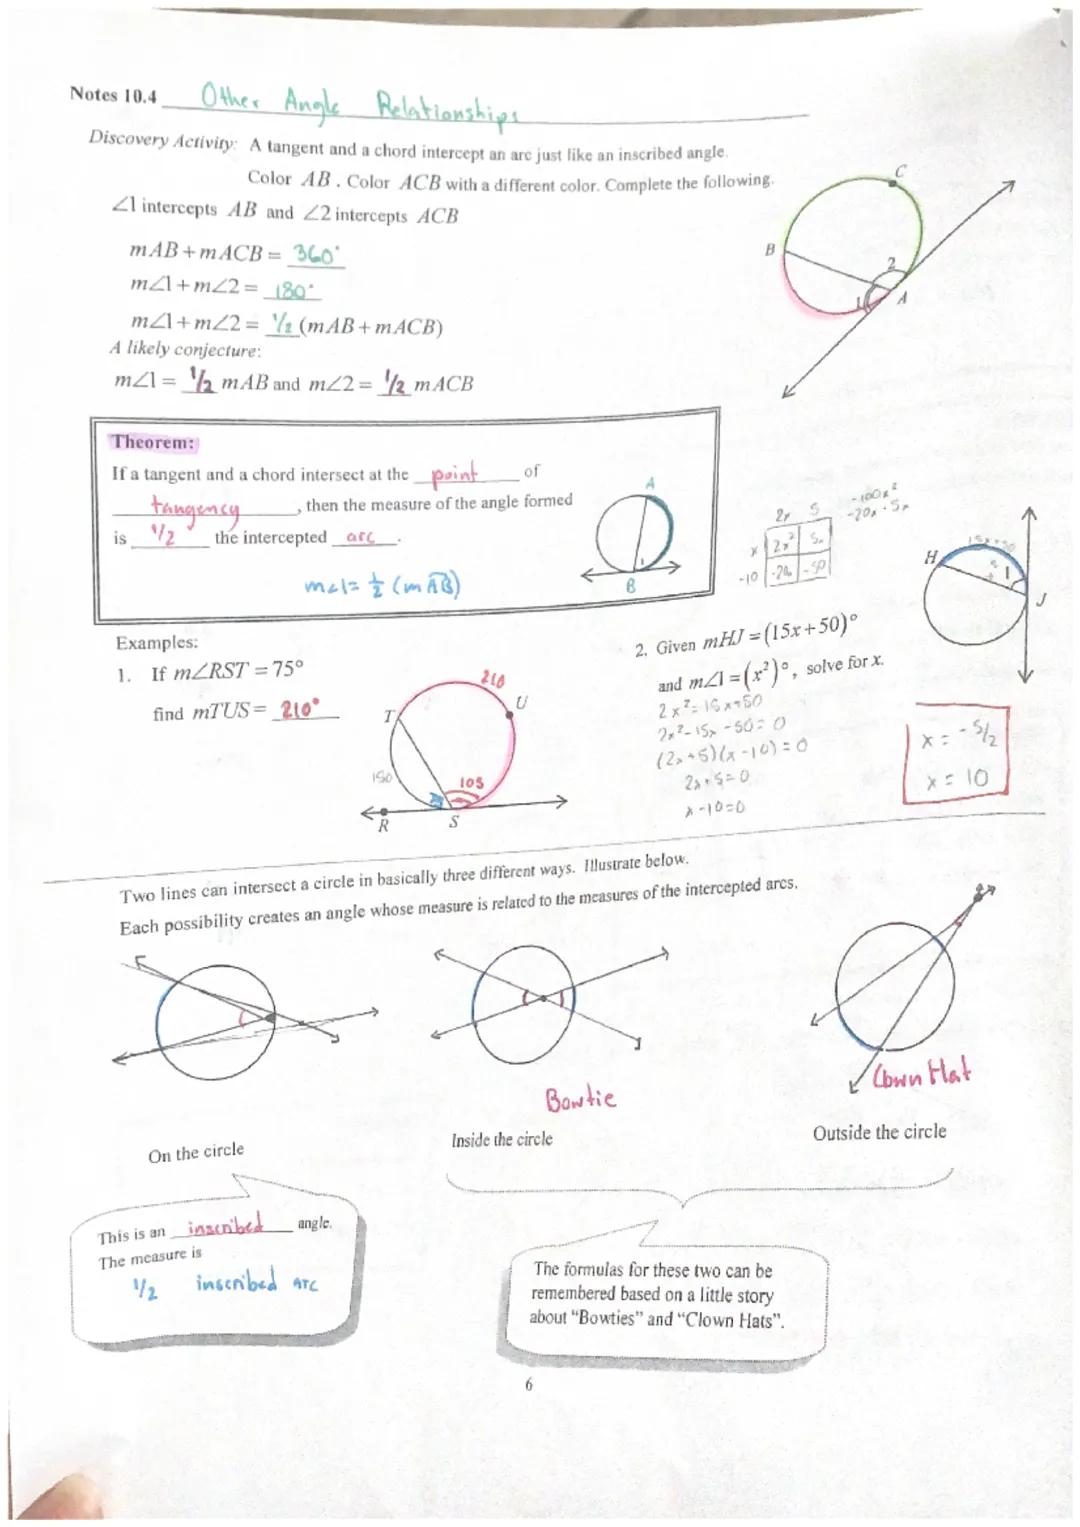 Notes 10.4 Other Angle Relationships
Discovery Activity: A tangent and a chord intercept an arc just like an inscribed angle.
Color AB. Color ACB with a different color. Complete the following.
∠1 intercepts AB and ∠2 intercepts ACB
mAB + mACB = 360°
m∠1 + m∠2 = 180°
m∠1 + m∠2 = 1/2 (mAB + mACB)
A likely conjecture:
m∠1 = 1/2 mAB and m∠2 = 1/2 mACB
C
B
2
1
A
Theorem:
If a tangent and a chord intersect at the point of
tangency, then the measure of the angle formed
is 1/2 the intercepted arc.
m∠1 = 1/2 (mAB)
A
1
B
2x 5
x 2x² 5x
-10 -20x -50
-100x²
-20x · 5x
H
15x+50
1
J
Examples:
1. If m∠RST = 75°
find mTUS = 210°
210
T
U
150
105
R
S
2. Given mHJ = (15x+50)°
and m∠1 = (x²)°, solve for x.
2x² = 15x+50
2x² - 15x - 50 = 0
(2x+5)(x-10) = 0
2x+5=0
x-10=0
x = -5/2
x = 10
Two lines can intersect a circle in basically three different ways. Illustrate below.
Each possibility creates an angle whose measure is related to the measures of the intercepted arcs.
Bowtie
Clown Hat
On the circle
Inside the circle
Outside the circle
This is an inscribed angle.
The measure is
1/2 inscribed arc
The formulas for these two can be
remembered based on a little story
about "Bowties" and "Clown Hats".
6